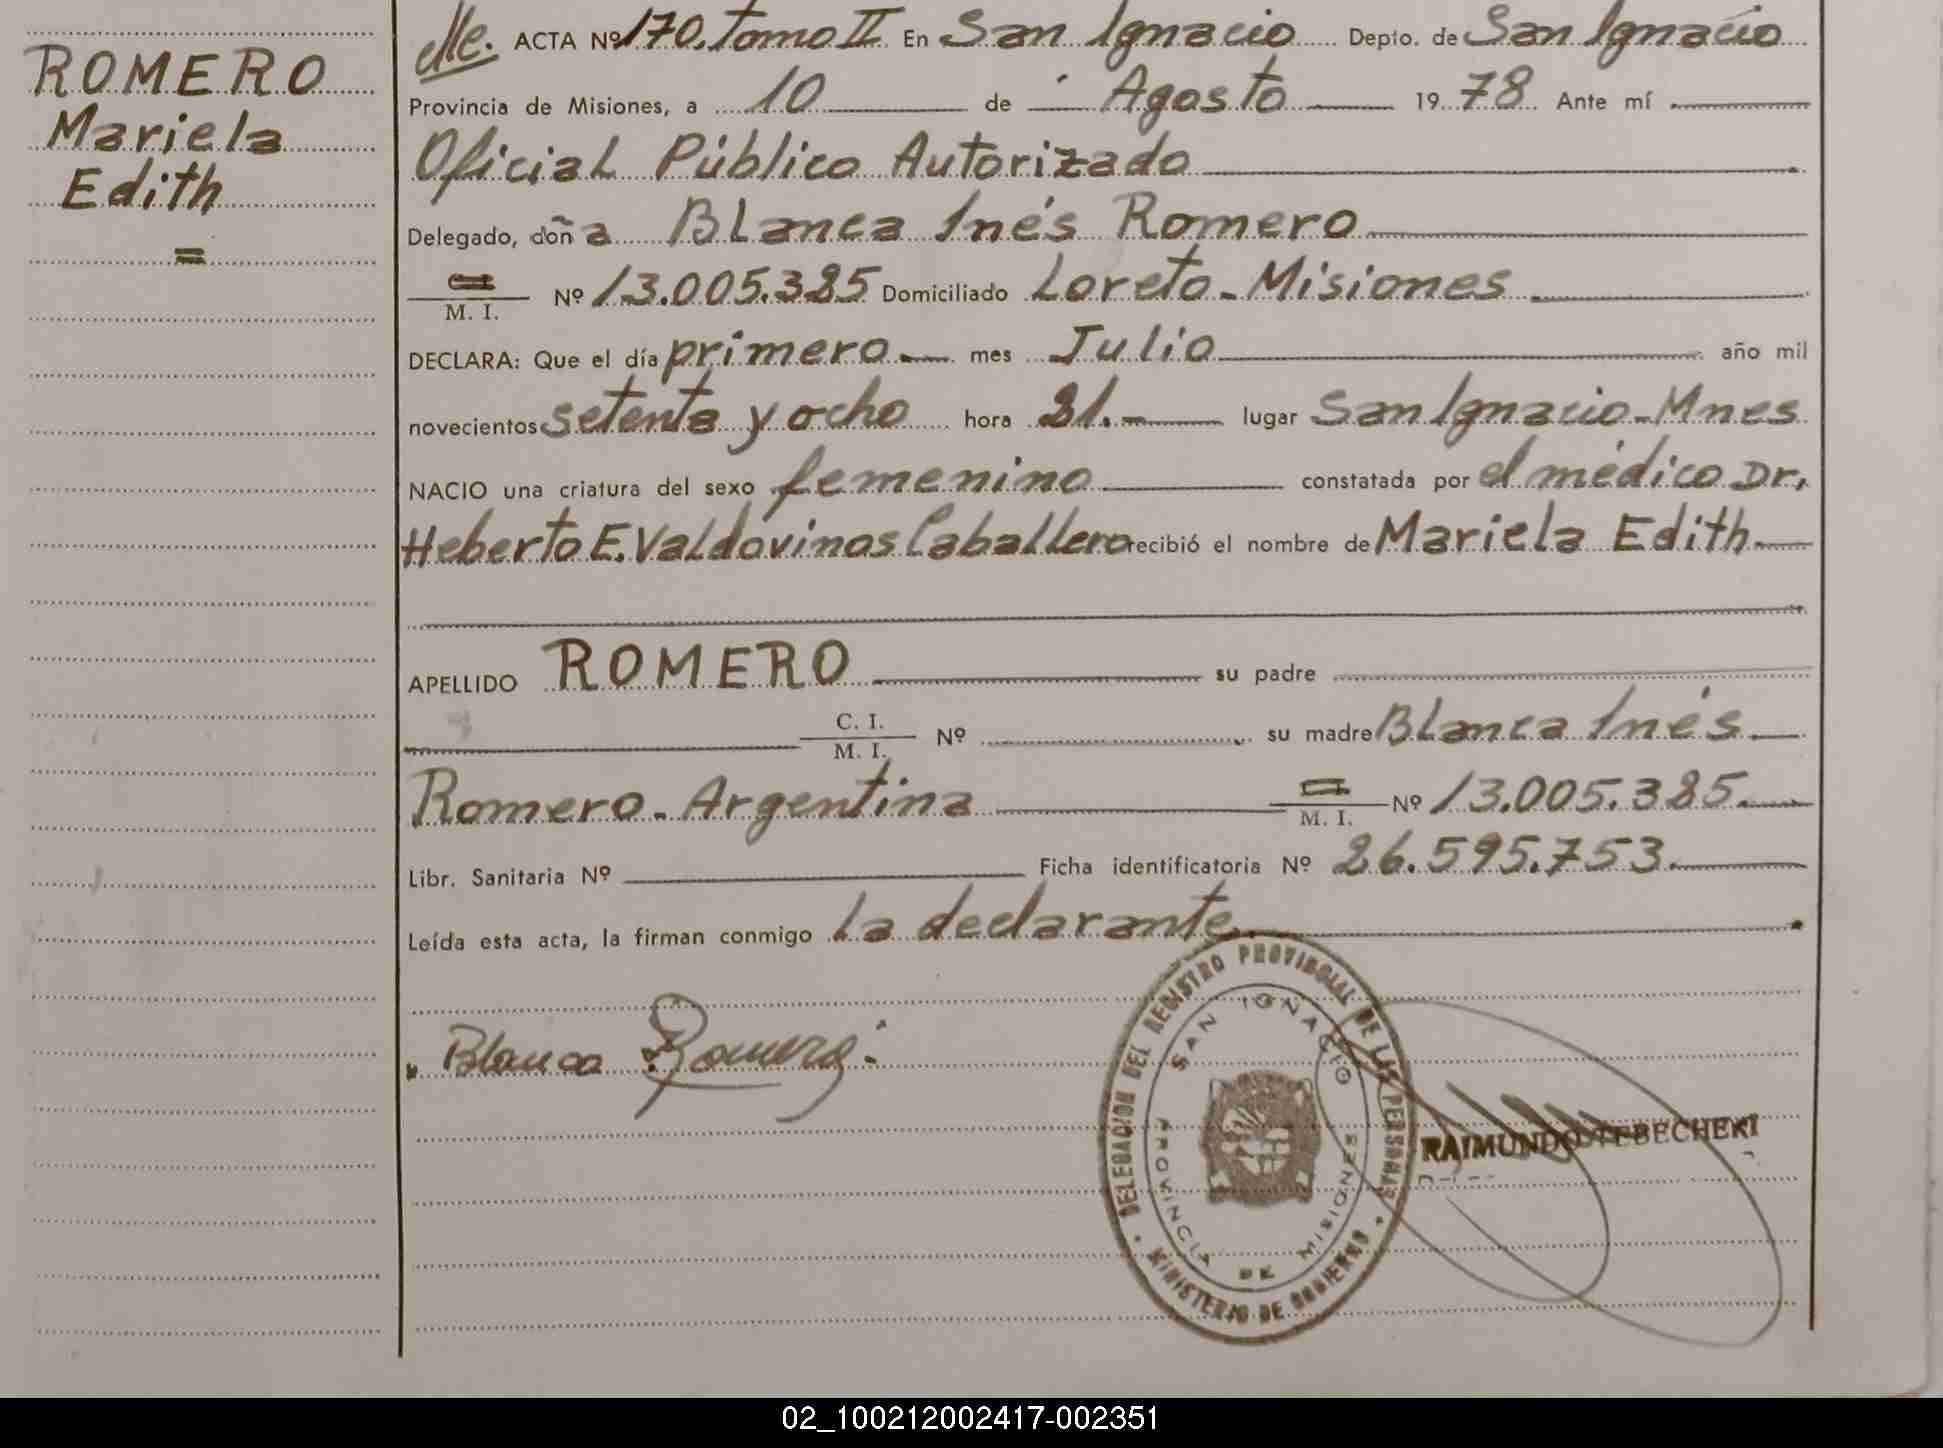 ROMERO
Mariela
Edith
=
Me. ACTA Nº 170. Tomo II En San Ignacio Depto. de San Ignacio
Provincia de Misiones, a 10 de Agosto 1978 Ante mí
Oficial Público Autorizado
Delegado, doña Blanca Inés Romero
M. I. Nº 13.005.385 Domiciliado Loreto - Misiones
DECLARA: Que el día primero mes Julio año mil
novecientos setenta y ocho hora 21.- lugar San Ignacio - Mnes
NACIO una criatura del sexo femenino constatada por el médico Dr.
Heberto E. Valdovinos Caballero recibió el nombre de Mariela Edith
APELLIDO ROMERO su padre
C. I.
M. I. Nº su madre Blanca Inés
Romero - Argentina M. I. Nº 13.005.385.
Libr. Sanitaria Nº Ficha identificatoria Nº 26.595.753.
Leída esta acta, la firman conmigo la declarante
Blanca Romero
DELEGACION DEL REGISTRO PROVINCIAL DE LAS PERSONAS
SAN IGNACIO
PROVINCIA DE MISIONES
MINISTERIO DE GOBIERNO
RAIMUNDO TEBECHERI
02_100212002417-002351